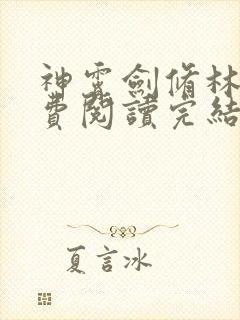 神霄劍脩林
費閱讀完結
夏言冰